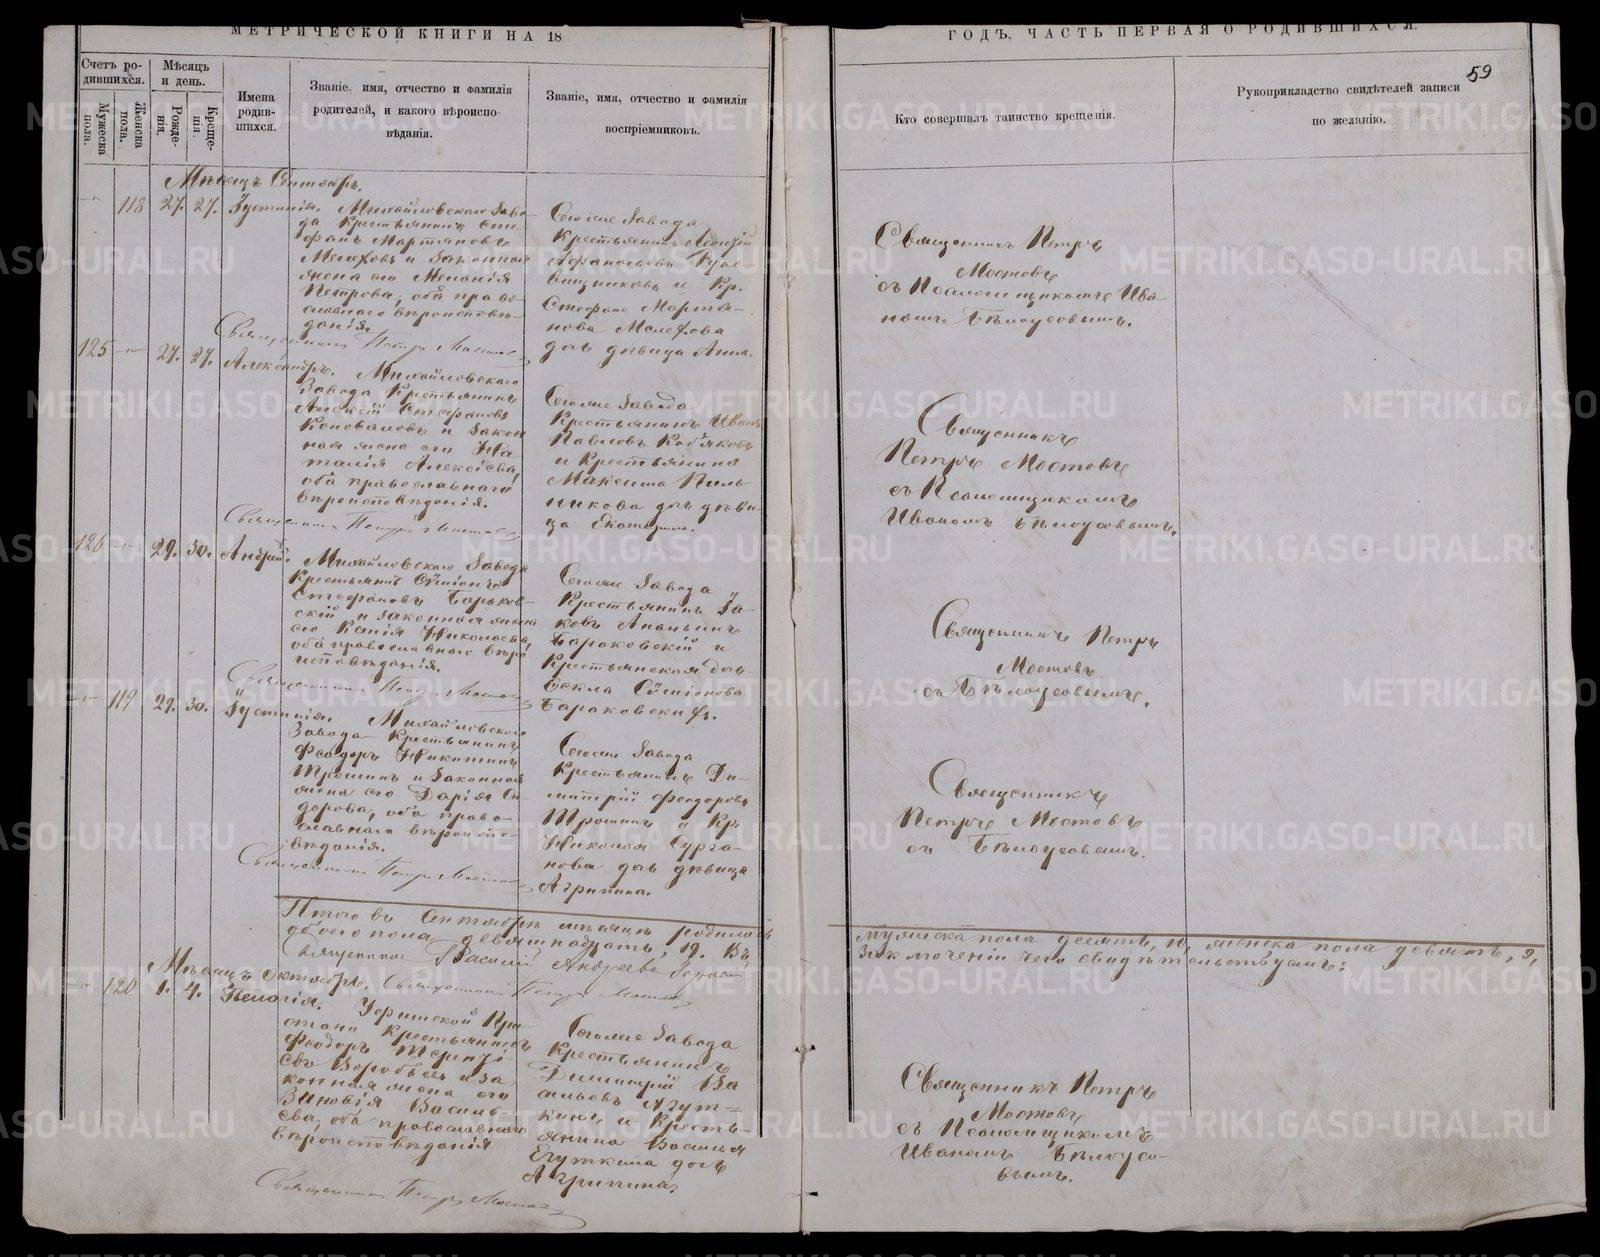 МЕТРИЧЕСКОЙ КНИГИ НА 18
ГОДЪ, ЧАСТЬ ПЕРВАЯ О РОДИВШИХСЯ.
59
Счетъ ро-
дившихся.
Мѣсяцъ
и день.
Мужеска
пола.
Женска
пола.
Рожде-
нія.
Креще-
нія.
Имена
родив-
шихся.
Званіе, имя, отчество и фамилія
родителей, и какого вѣроиспо-
вѣданія.
Званіе, имя, отчество и фамилія
воспріемниковъ.
Кто совершалъ таинство крещенія.
Рукоприкладство свидѣтелей записи
по желанію.
Мѣсяцъ Сентябрь.
118 27. 27. Іустинія.
Михайловскаго Заво-
да Крестьянинъ Сте-
фанъ Мартяновъ
Мелеховъ и законная
жена его Меланія
Петрова, оба право-
славнаго вѣроисповѣ-
данія.
Священникъ Петръ Мостовъ
Тогоже Завода
Крестьянинъ Леонтій
Афанасьевъ Руко-
вишниковъ и Кр.
Стефана Мартя-
нова Мелехова
дочь дѣвица Анна.
Священникъ Петръ
Мостовъ
съ Псаломщикомъ Ива-
номъ Бѣлоусовымъ.
125 27. 27. Александръ.
Михайловскаго
Завода Крестьянинъ
Алексѣй Стефановъ
Коноваловъ и закон
ная жена его На-
талія Алексѣева,
оба православнаго
вѣроисповѣданія.
Священникъ Петръ Мостовъ
Тогоже Завода
Крестьянинъ Иванъ
Павловъ Кобяковъ
и Крестьянина
Максима Пиль-
никова дочь дѣви-
ца Екатерина.
Священникъ
Петръ Мостовъ
съ Псаломщикомъ
Иваномъ Бѣлоусовымъ.
126 29. 30. Андрей.
Михайловскаго Завода
Крестьянинъ Симеонъ
Стефановъ Бараков-
скій и законная жена
его Ксенія Николаева,
оба православнаго вѣро
исповѣданія.
Священникъ Петръ Мостовъ
Тогоже Завода
Крестьянинъ Іа-
ковъ Ананьинъ
Бараковскій и
Крестьянская дочь
Фекла Симіонова
Бараковскихъ.
Священникъ Петръ
Мостовъ
съ Бѣлоусовымъ.
119 29. 30. Іустинія.
Михайловскаго
Завода Крестьянинъ
Феодоръ Никитинъ
Трошинъ и законная
жена его Дарія Си-
дорова, оба право-
славнаго вѣроиспо-
вѣданія.
Священникъ Петръ Мостовъ
Тогоже Завода
Крестьянинъ Ди-
митрій Феодоровъ
Трошинъ и Кр.
Николая Сурга-
нова дочь дѣвица
Агрипина.
Священникъ
Петръ Мостовъ
съ Бѣлоусовымъ.
Итого въ Сентябрѣ мѣсяцѣ родилось
обоего пола девятнадцать, 19. Въ
мужеска пола десять, 10, женска пола девять, 9,
Заключеніи чего свидѣтельствуемъ:
Священникъ Василій Андреевъ
Священникъ Петръ Мостовъ
Мѣсяцъ Октябрь.
120 1. 4. Пелагія.
Уфимской При-
стани Крестьянинъ
Феодоръ Терентъ-
евъ Воробьевъ и за
конная жена его
Зиновія Василь-
ева, оба православнаго
вѣроисповѣданія
Священникъ Петръ Мостовъ
Тогоже Завода
Крестьянинъ
Димитрій Ва
сильевъ Агут-
кинъ, и Кресть-
янина Василья
Агуткина дочь
Агрипина.
Священникъ Петръ
Мостовъ
съ Псаломщикомъ
Иваномъ Бѣлоусо-
вымъ.
METRIKI.GASO-URAL.RU